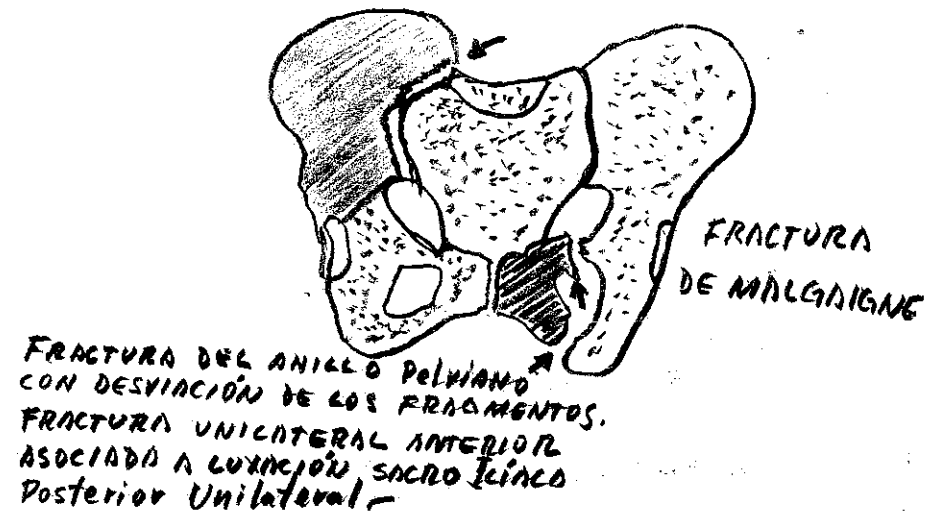 FRACTURA
DE MALGAIGNE
FRACTURA DEL ANILLO PelviANO
CON DESVIACIÓN DE LOS FRAGMENTOS.
FRACTURA UNILATERAL ANTERIOR
ASOCIADA A LUXACIÓN SACRO ILÍACA
Posterior Unilateral-